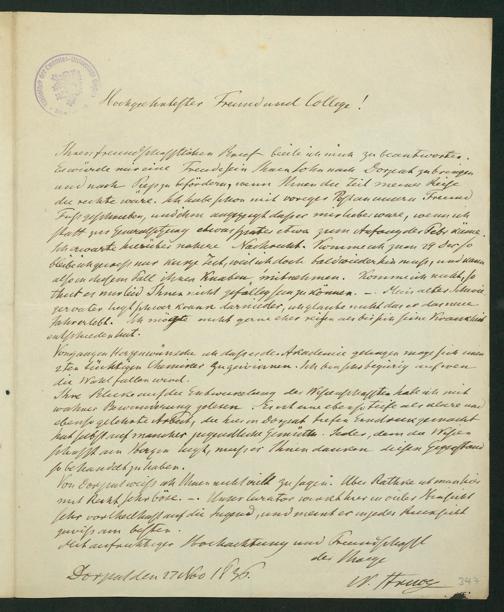 Hochgeehrtester Freund und College!
Ihren freundschaftlichen Brief beeile ich mich zu beantworten.
Es würde mir eine Freude sein Ihren Sohn nach Dorpat zu bringen
und nach zu befördern, wenn Ihnen die Zeit meiner Reise
die rechte wäre. Ich habe schon mit voriger Post an unsern Freund
Fuss geschrieben, und ihm angezeigt dass es mir lieber wäre, wenn ich
statt zur etwas später etwa zum Anfang des Febr käme.
Ich erwarte hierüber nähere Nachricht. Komme ich zum 29 Dec so
bleibe ich gewiss nur kurze Zeit, weil ich doch bald wieder hin muss, und kann
also in diesem Fall ihren Knaben mitnehmen. Komme ich nicht, so
thut es mir leid Ihnen nicht gefällig sein zu können. — Mein alter Schwie
gervater liegt schwer krank darnieder, ich glaube nicht dass er das neue
Jahr erlebt. Ich mögte nicht gerne eher reisen als bis sich seine Krankheit
entschieden hat.
Von ganzen Herzen wünsche ich dass es der Akademie gelingen möge sich einen
2ten tüchtigen Chemiker zu gewinnen. Ich bin sehr begierig auf wen
die Wahl fallen wird.
Ihre Blicke auf die Entwicklung der Wissenschaften habe ich mit
wahrer Bewunderung gelesen. Es ist eine ebenso tiefe als klare und
ebenso gelehrte Arbeit, die hier in Dorpat tiefen Eindruck gemacht
hat selbst auf manches jugendliche Gemüth. Jeder, dem die Wissen
schaft am Herzen liegt, muss es Ihnen danken diesen Gegenstand
so behandelt zu haben.
Von Dorpat weiss ich Ihnen nicht viel zu sagen. Über Rathke ist man hier
mit Recht sehr böse. — Unser Curator wirkt hier in vieler Hinsicht
sehr vortheilhaft auf die Jugend, und meint es in jeder Hinsicht
gewiss am besten.
Mit aufrichtiger Hochachtung und Freundschaft
der Ihrige
W. Struve
Dorpat den 27 Nov 1836.
347